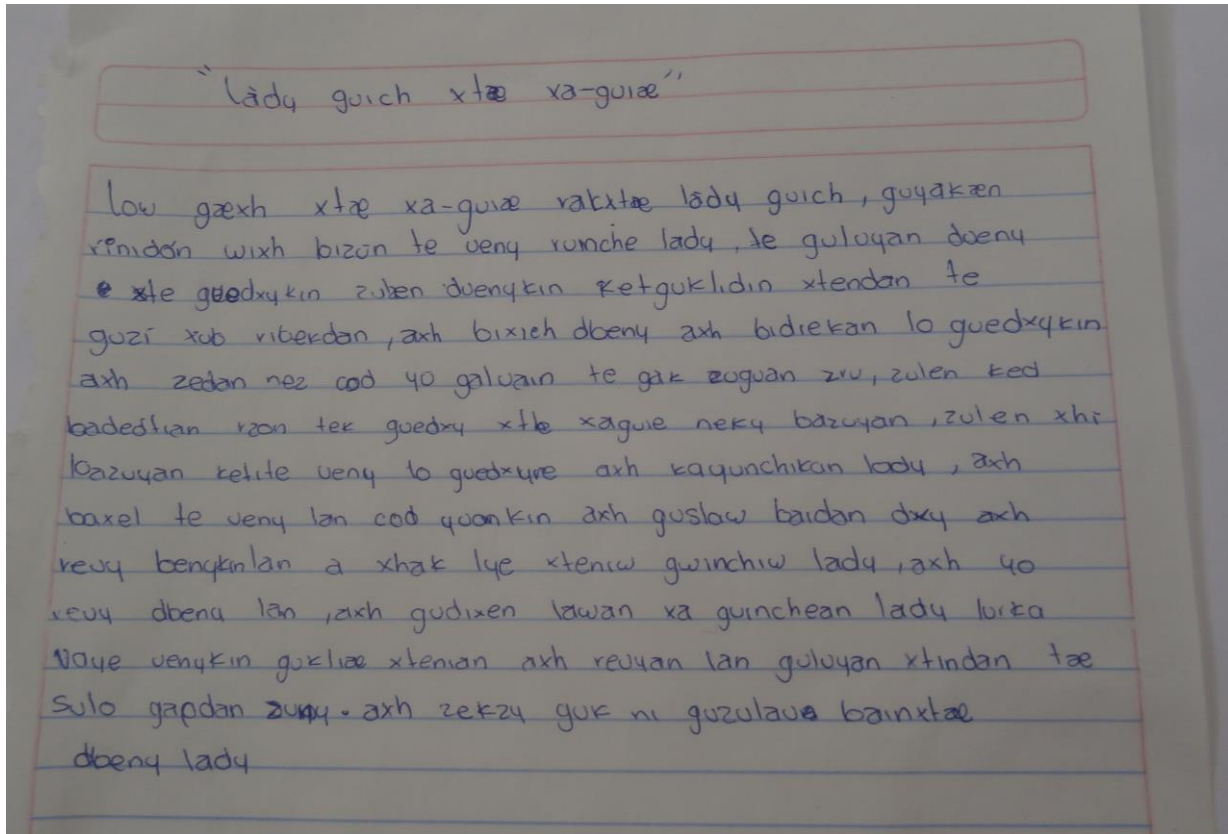 "lady guich xtæ xa-guiæ"
low gæxh xtæ xa-guiæ rakxtæ lady guich, guyakæn
rinidón wixh bizun te veny runche lady, te guluyan dbeny
xte guedxykin zuben dvenykin ketguklidin xtendan te
guzi xub riberdan, axh bixieh dbeny axh bidiekan lo guedxykin
axh zedan nez cod yo galvain te gak zuguan zru, zulen ked
badedtian raon ter guedxy xtæ xaguie neky bazuyan, zulen xhi
bazuyan ketite veny lo guedxyre axh kayunchikan lady, axh
baxel te veny lan cod yuonkin axh guslaw baidan dxy axh
revy benykinlan a xhak lye xteniw gwinchiw lady, axh yo
revy dbeny lan, axh gudixen lawan xa guinchean lady lurka
naye venykin gukliæ xtenian axh revyan lan guluyan xtindan tæ
sulo gapdan axh zekzy guk ni guzulaua bainxtæ
dbeny lady